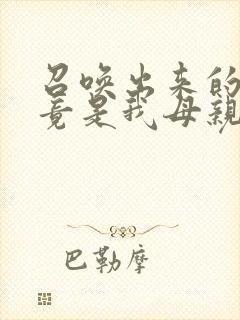 召唤出来的
竟是我母亲
巴勒摩